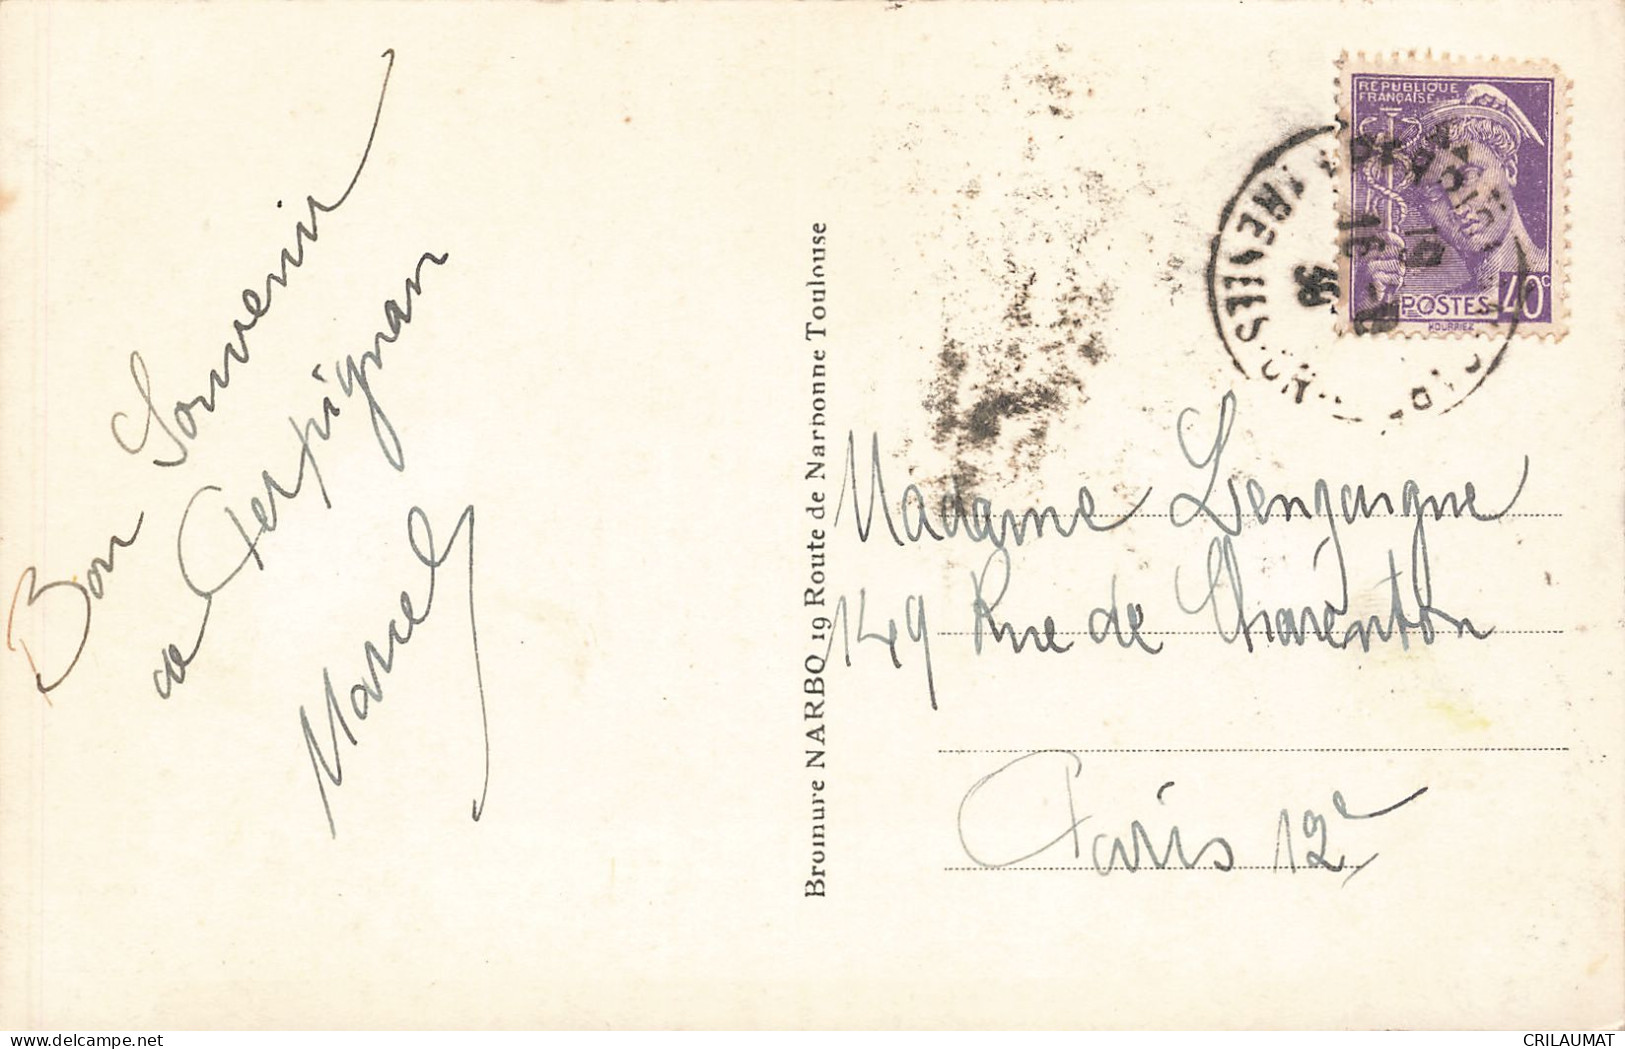 Bon Souvenir
de Perpignan
Marcel
Bromure NARBO 19 Route de Narbonne Toulouse
REPUBLIQUE
FRANÇAISE
POSTES 40c
HOURRIEZ
Madame Lengaigne
149 Rue de Charenton
Paris 12e
CRILAUMAT